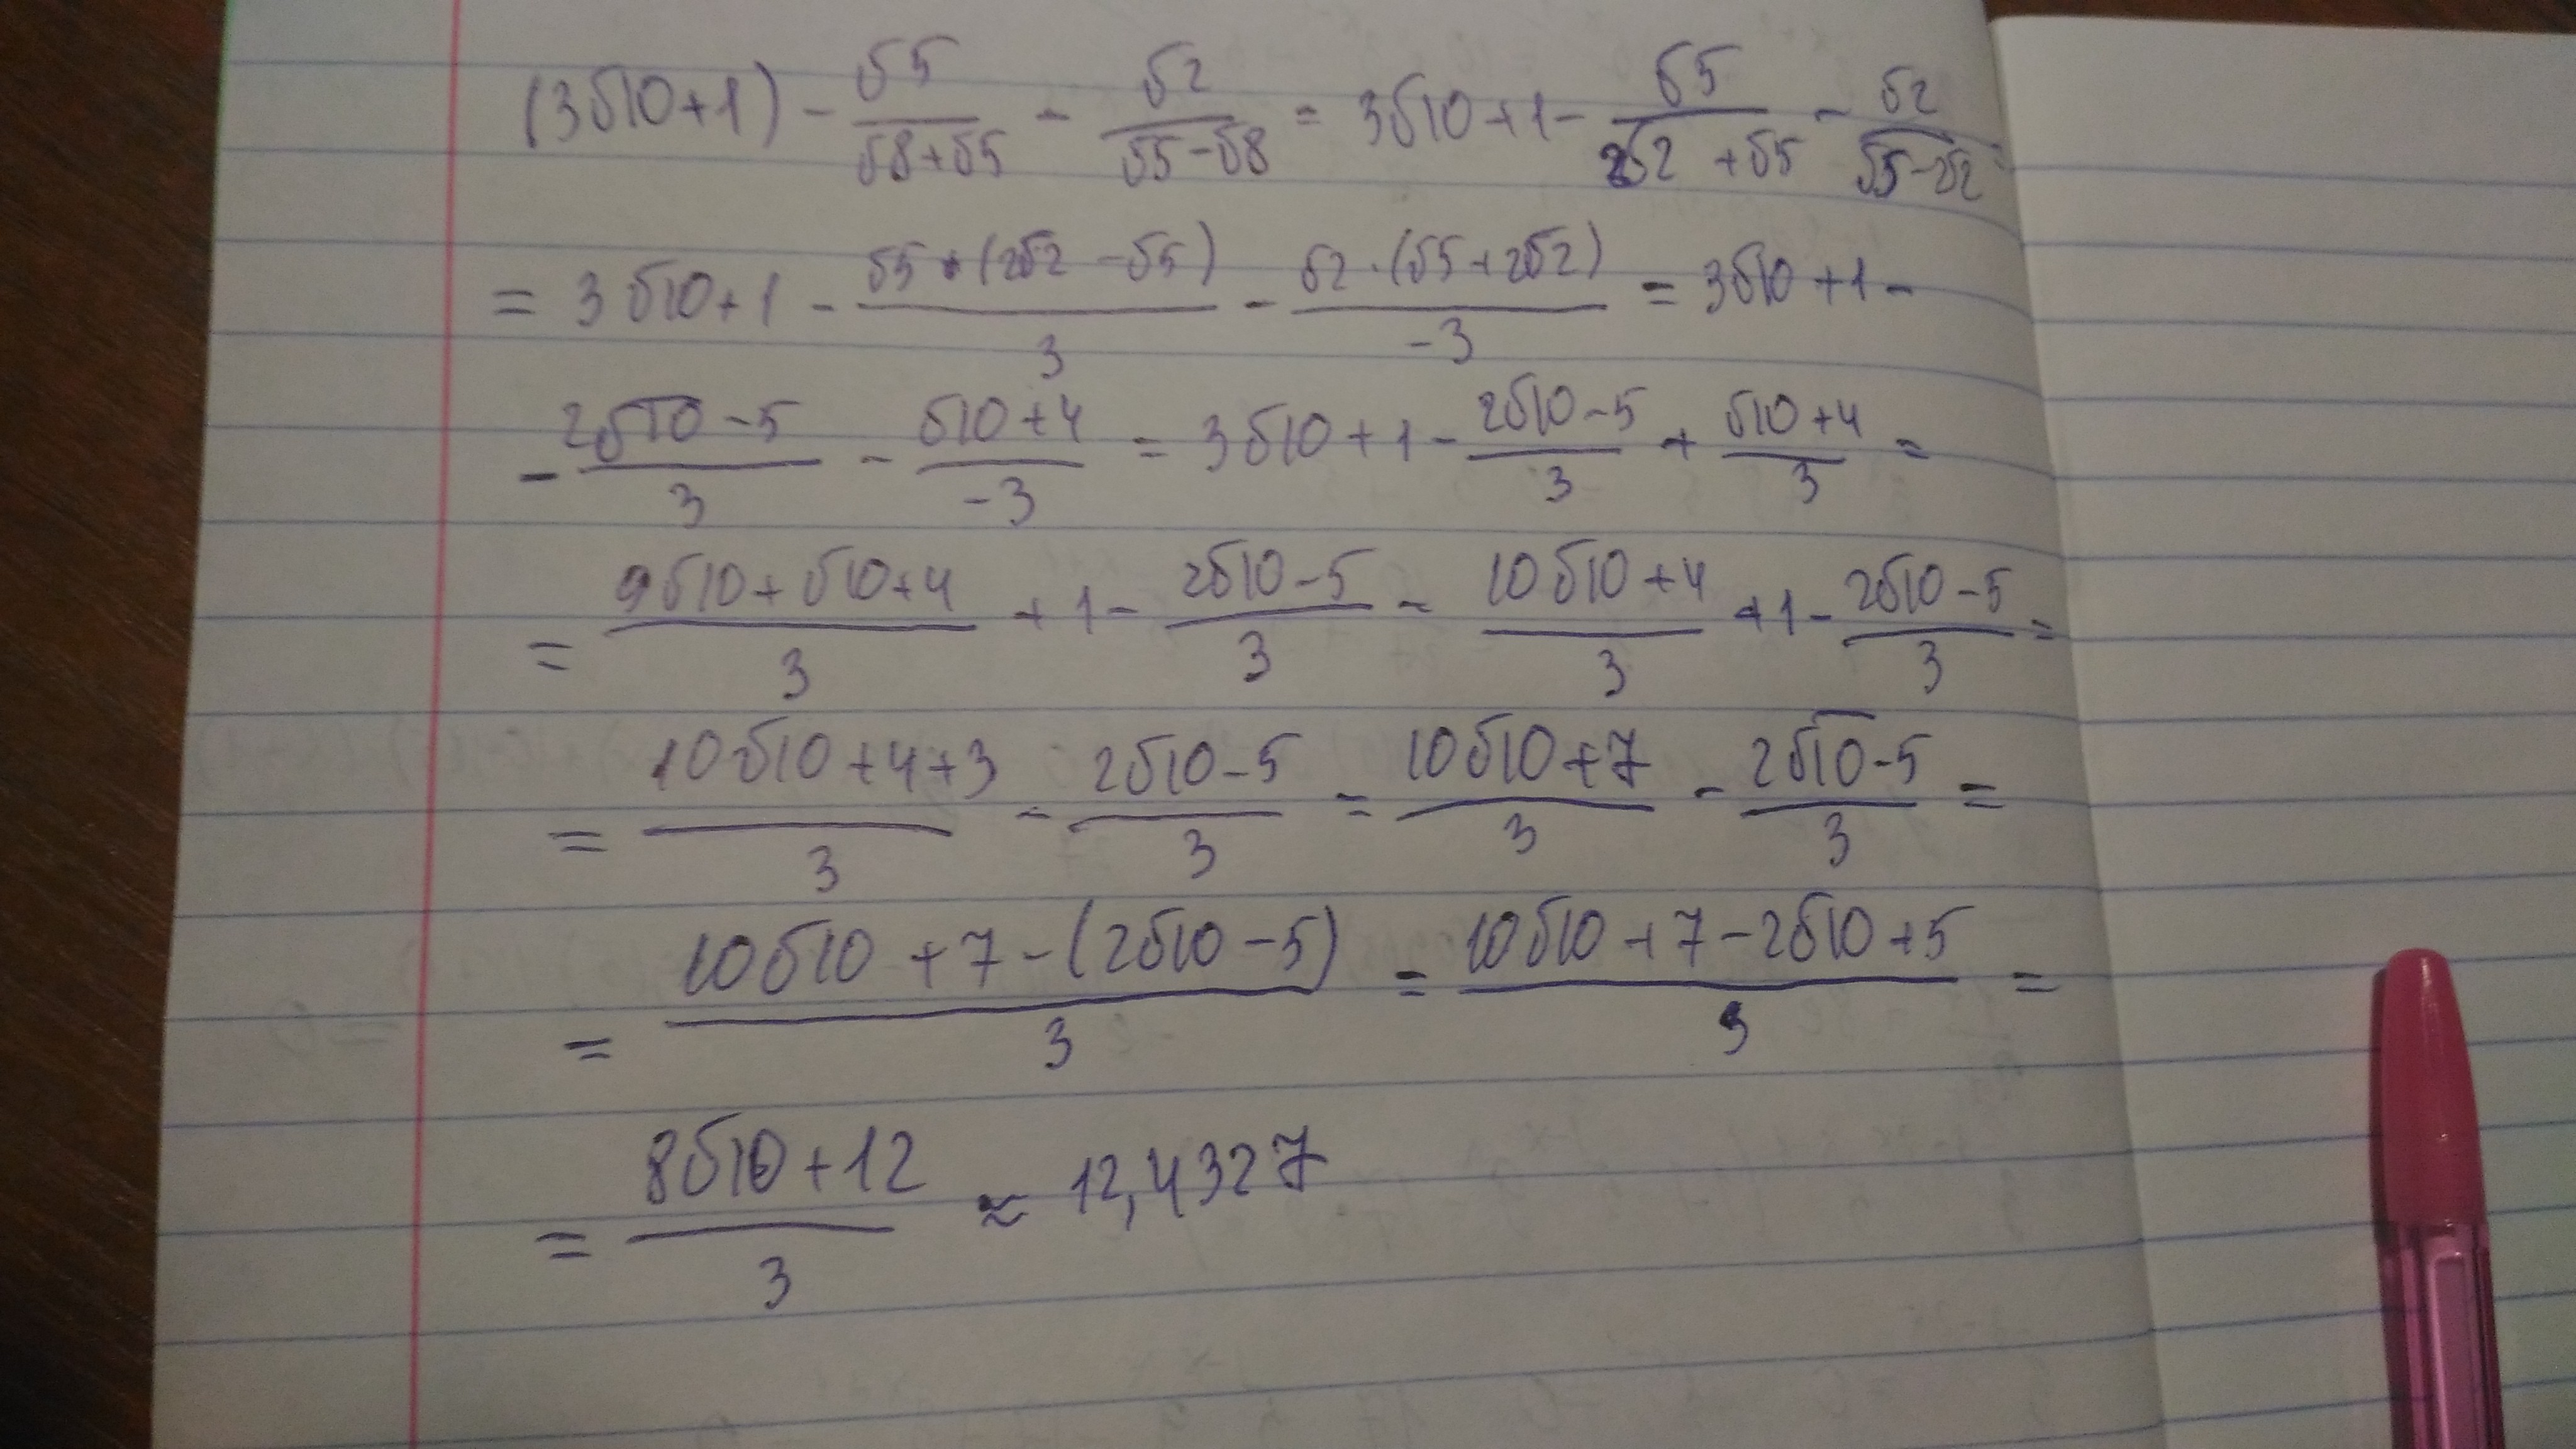 (3√10+1) - √5/(√8+√5) - √2/(√5-√8) = 3√10+1 - √5/(2√2+√5) - √2/(√5-2√2)
= 3√10+1 - √5·(2√2-√5)/3 - √2·(√5+2√2)/-3 = 3√10+1-
- (2√10-5)/3 - (√10+4)/-3 = 3√10+1 - (2√10-5)/3 + (√10+4)/3 =
= (9√10+√10+4)/3 + 1 - (2√10-5)/3 = (10√10+4)/3 + 1 - (2√10-5)/3 =
= (10√10+4+3)/3 - (2√10-5)/3 = (10√10+7)/3 - (2√10-5)/3 =
= (10√10+7-(2√10-5))/3 = (10√10+7-2√10+5)/3 =
= (8√10+12)/3 ≈ 12,4327